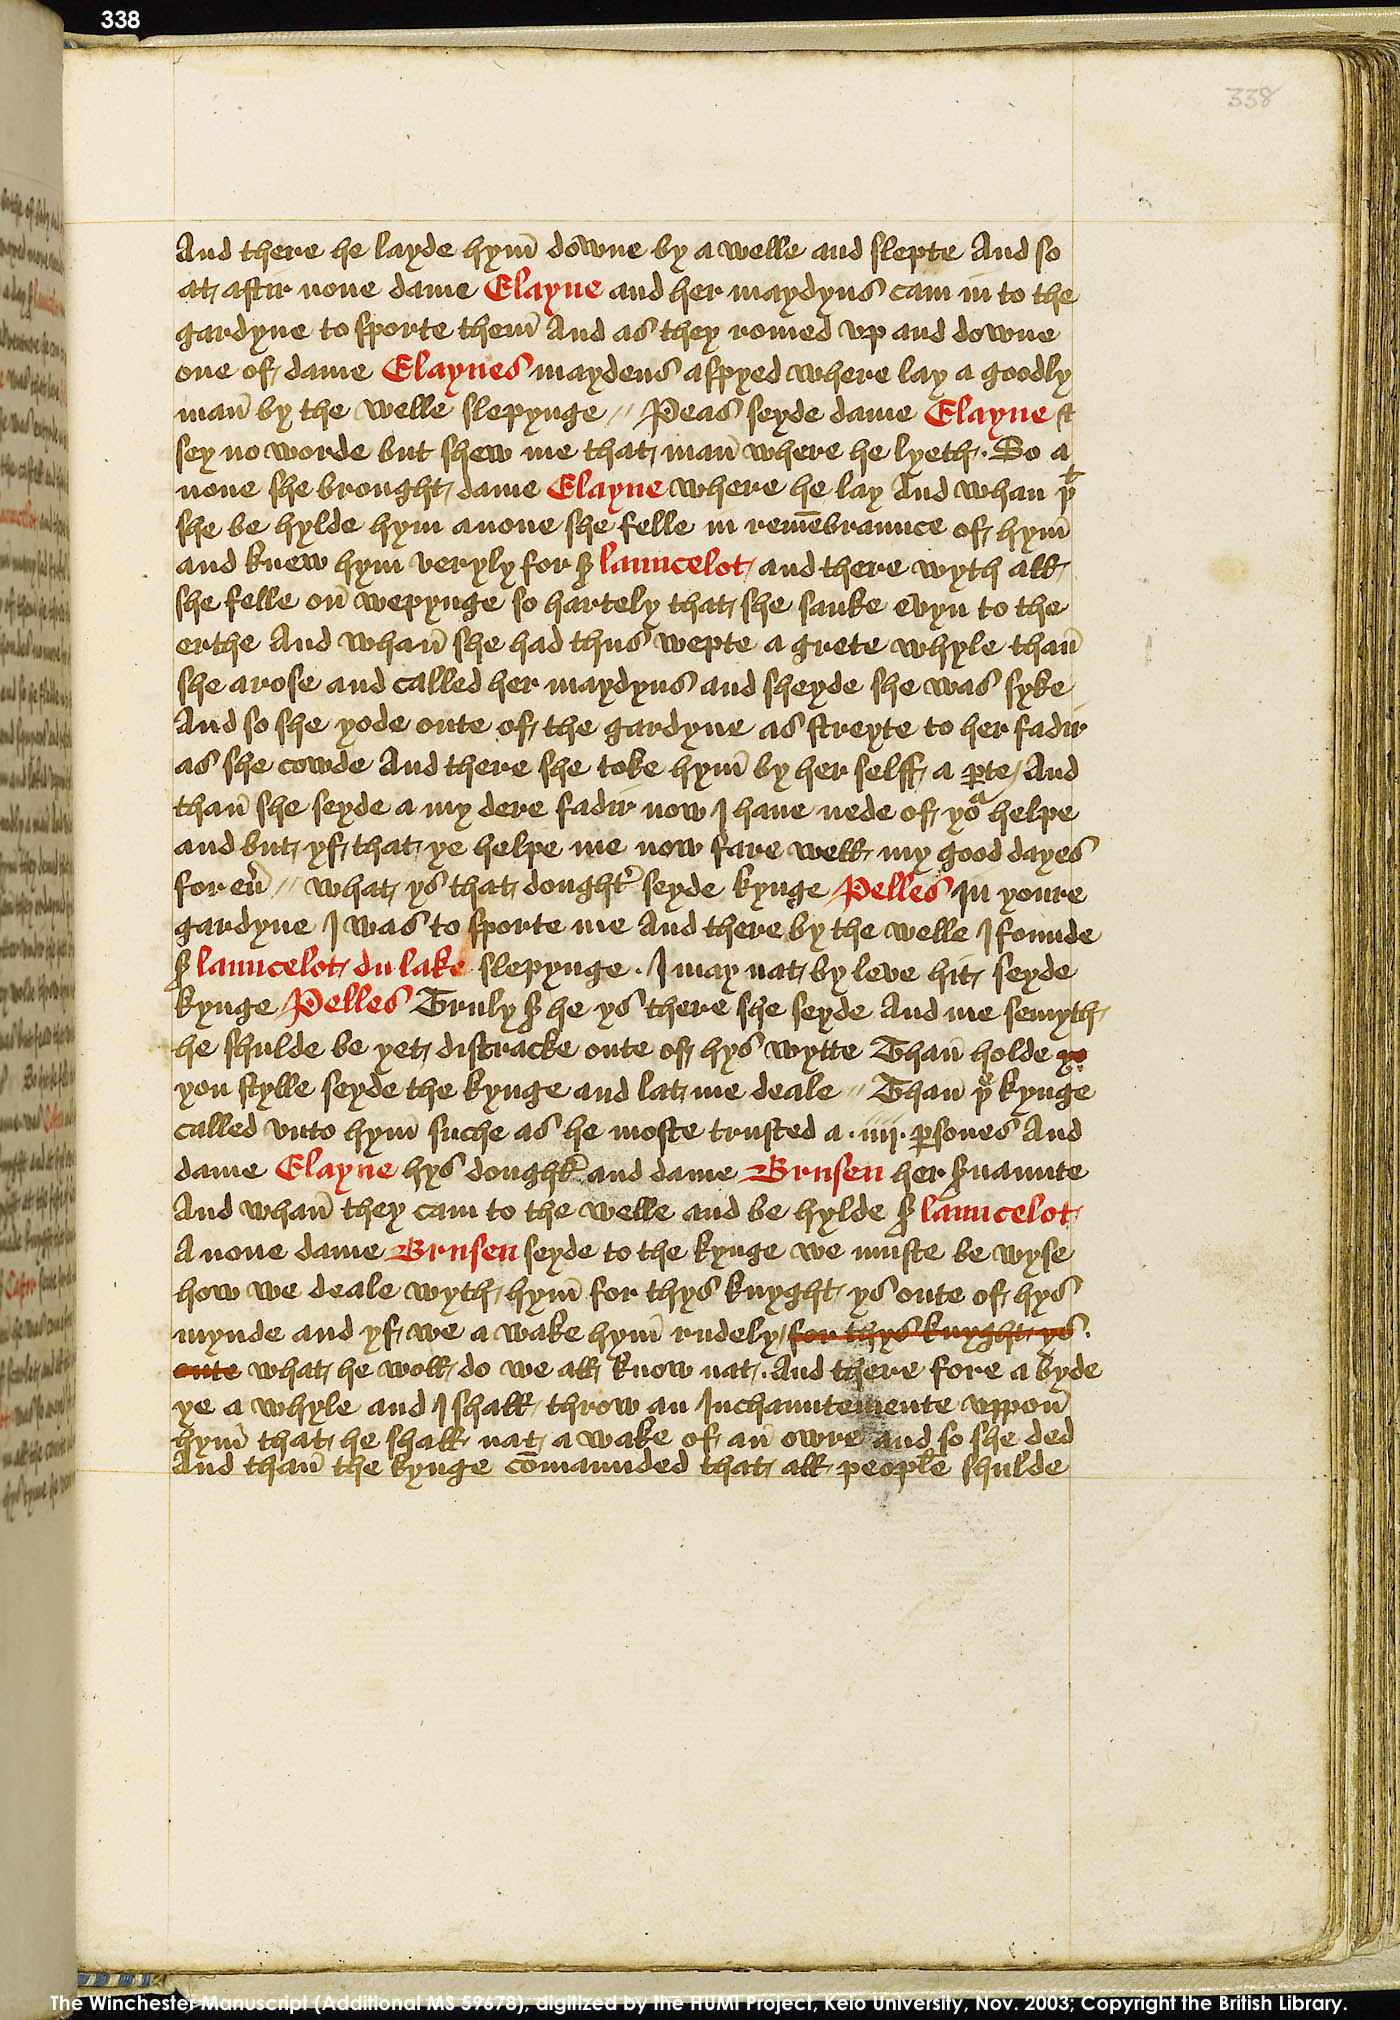 338
338
And there he layde hym̄ downe by a welle and slepte And so
at aftir none dame Elayne and her maydyns cam in to the
gardyne to sporte them̄ And as they romed vp and downe
one of dame Elaynes maydens aspyed where lay a goodly
man̄ by the welle slepynge // Peas seyde dame Elayne &
sey no worde but shew me that man̄ where he lyeth · So a
none she brought dame Elayne where he lay And whan þᵗ
she be hylde hym anone she felle in remēbraunce of hym̄
and knew hym veryly for ẜ launcelot and there wyth all
she felle on̄ wepynge so hartely that she sanke evyn to the
erthe And whan̄ she had thus wepte a grete whyle than̄
she arose and called her maydyns and sheyde she was syke
And so she yode oute of the gardyne as streyte to her fadir
as she cowde And there she toke hym̄ by her selff a ꝑte / And
than̄ she seyde a my dere fadir now I haue nede of yoᵃ helpe
and but yf that ye helpe me now fare well my good dayes
for eu̓ // what ys that dought̓ seyde kynge Pelles In youre
gardyne I was to sporte me And there by the welle I founde
ẜ launcelot du lake slepynge · I may nat by leve hit seyde
kynge Pelles Truly ẜ he ys there she seyde And me semyth
he shulde be yet distracke oute of hys wytte Than̄ holde yo
you stylle seyde the kynge and lat me deale // Than̄ þᵉ kynge
called vnto hym̄ suche as he moste trusted a · iiij · ꝑsones And
dame Elayne hys dought̓ and dame Brusen her ẜuaunte
And whan̄ they cam to the welle and be hylde ẜ launcelot
A none dame Brusen seyde to the kynge we muste be wyse
how we deale wyth hym̄ for thys knyght ys oute of hys
mynde and yf we a wake hym̄ rudely / for thys knyght ys ·
oute what he woll do we all know nat · And there fore a byde
ye a whyle and I shall throw an Inchauntemente vppon̄
hym̄ that he shall nat a wake of an̄ owre and so she ded
And than̄ the kynge cōmaunded that all people shulde
The Winchester Manuscript (Additional MS 59678), digitized by the HUMI Project, Keio University, Nov. 2003; Copyright the British Library.